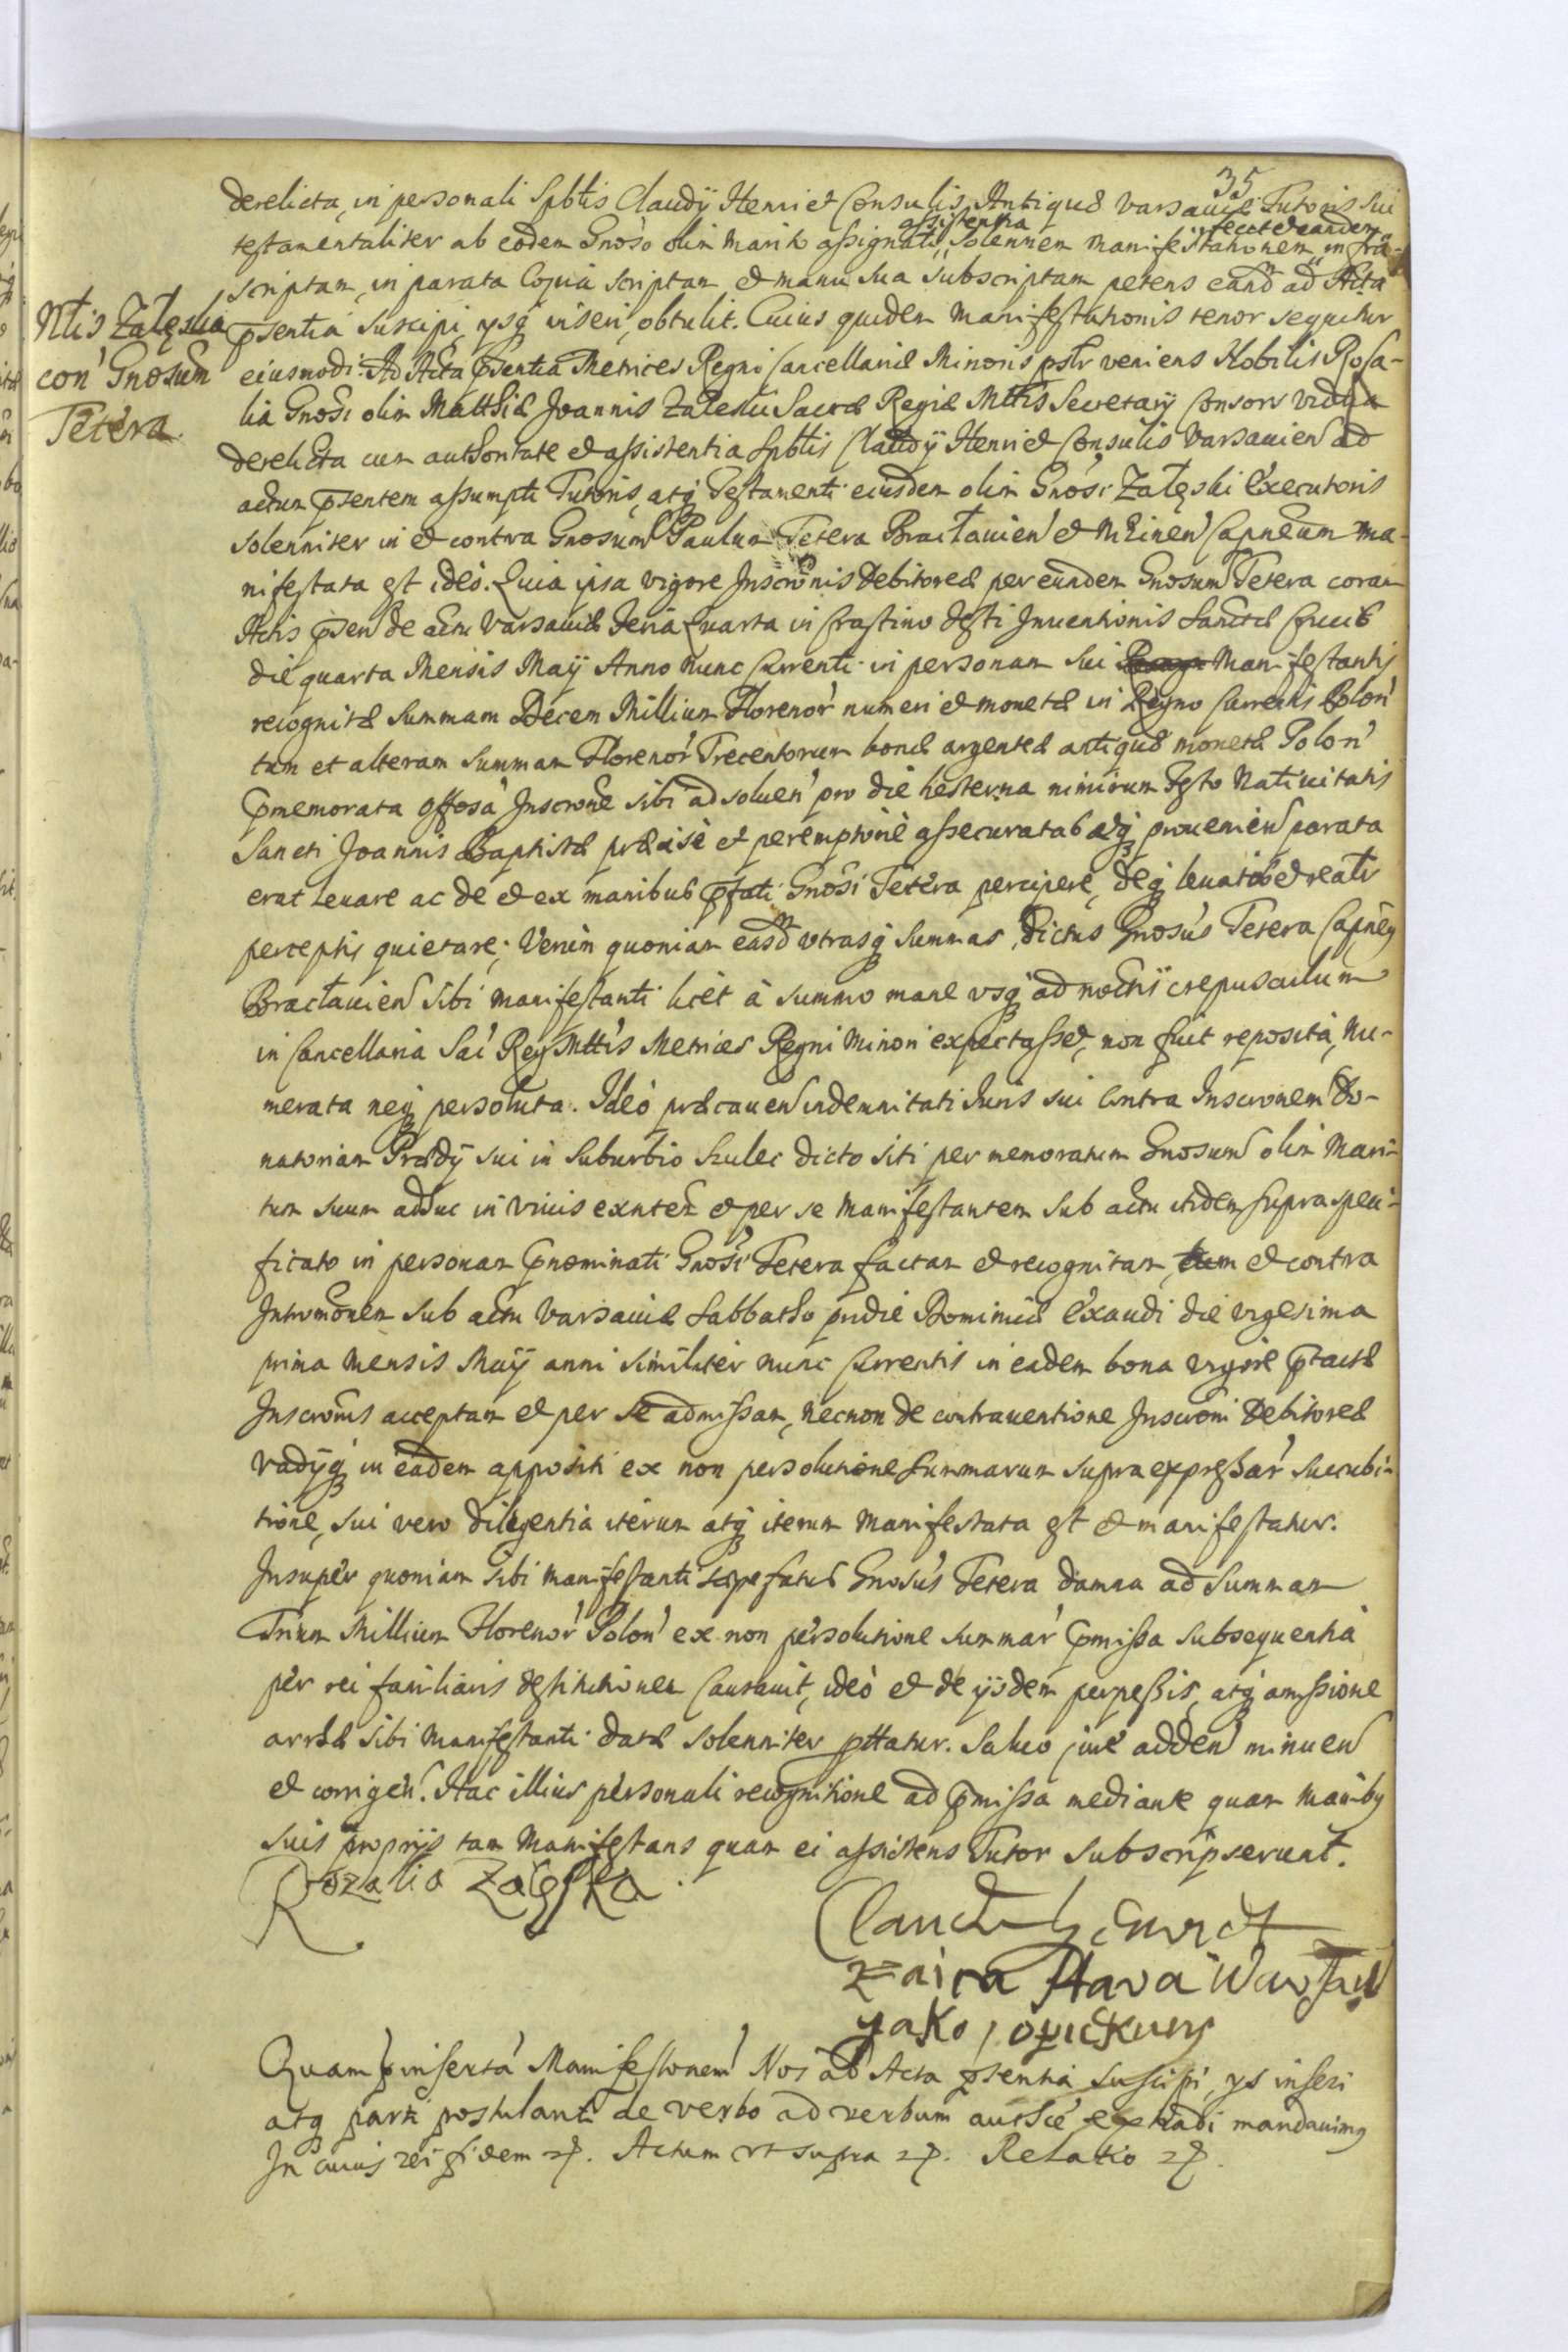 35
derelicta, in personali Spblis Claudÿ Henriet Consulis Antiquæ Varsauiæ Tutoris sui
assistentia fecit et eandem
testamentaliter ab eodem Gnoso olim Marito assignati, Solennem manifestationem infra
scriptam, in parata Copia scriptam et manu sua subscriptam petens eand ad Acta
Ntis Zaleska
con' Gnosum
Tetera.
pñsentia suscipi, ysq inseri, obtulit. Cuius quidem Manifestationis tenor sequitur
eiusmodi. Ad Acta pñsentia Metrices Regni Cancellariæ Minoris pslr veniens Nobilis Rosa-
lia Gnosi olim Matthiæ Joannis Zaleski Sacræ Regiæ Mttis Secretarÿ Consors vidua
derelicta cum authoritate et assistentia Spblis Claudÿ Henriet Consulis Varsauien ad
actum pñsentem assumpti Tutoris, atq Testamenti eiusdem olim Gnosi Zaleski Executoris
solenniter in et contra Gnosum Paulum Tetera Braclauien et Capneum ma-
nifestata est ideò. Quia ipsa vigore Inscrõnis Debitoreæ per eundem Gnosum Tetera coram
Actis pñsen de actu Varsauiæ Feria Quarta in Crastino Festi Inuentionis Sanctæ Crucis
die quarta Mensis Maÿ Anno nunc Currenti in personam sui Manifestantis
recognitæ Summam Decem Millium Florenor' numeri et monetæ in Regno Currentis Polon'
tum et alteram Summam Florenor' Trecentorum bonæ argenteæ antiquæ monetæ Polon'
pmemorata Inscrone sibi adsoluen' pro die hesterna nimirum Festo Natiuitatis
Sancti Joannis Baptistæ præcisè et peremptoriè assecuratas atq prouenien parata
erat leuare ac de et ex manibus pfati Gnosi Tetera percipere, deq leuatis et realr
perceptis quietare; Verùm quoniam easd vtrasq Summas, dictus Gnosus Tetera Capneus
Braclauien sibi manifestanti licèt à summo mane vsq ad noctis crepusculum
in Cancellaria Sac Reg Mttis Metrices Regni Minori expectasset, non fuit reposita, Nu-
merata neq persoluta. Ideò præcauen indemnitati Iuris sui Contra Inscronem Do-
natoriam Prædÿ sui in Suburbio Szulec dicto siti per memoratum Gnosum olim Mari-
tum suum adhuc in viuis exnten et per se Manifestantem sub actu itidem supra speci-
ficato in personam pnominati Gnosi Tetera factam et recognitam, tum et contra
Intromonem sub actu Varsauiæ Sabbatho pridie Dominicæ Exaudi die vigesima
prima Mensis Maÿ anni similiter nunc Currentis in eadem bona vigore ptactæ
Inscronis acceptam et per se admissam, necnon de contrauentione Inscroni Debitoreæ
vadÿq in eadem appositi ex non persolutione Summarum supra expressar' succubi-
tione, sui vero diligentia iterum atq iterum Manifestata est et manifestatur.
Insuper quoniam sibi manifestanti sæpefatus Gnosus Tetera damna ad Summam
Trium Millium Florenor' Polon' ex non persolutione summar' pmissa subsequentia
per rei familiaris destitutionem Causauit, ideò et de ijsdem perpessis, atq amissione
arrhæ sibi Manifestanti datæ solenniter pttatur. Saluo jure adden minuen
et corrigen. Hac illius personali recognitione ad pmissa mediante quam manibus
suis proprijs tam Manifestans quam ei assistens Tutor subscripserunt.
Rozalia Zaleska.
Claudy Henriet
Raica Stara Warsaw
yako opiekun
Quam pinserta Manifestonem Nos ad Acta psentia suscipi, ys inseri
atq parti postulanti de verbo ad verbum authce extradi mandauimus
In cuius rei fidem etc. Actum vt supra etc. Relatio etc.